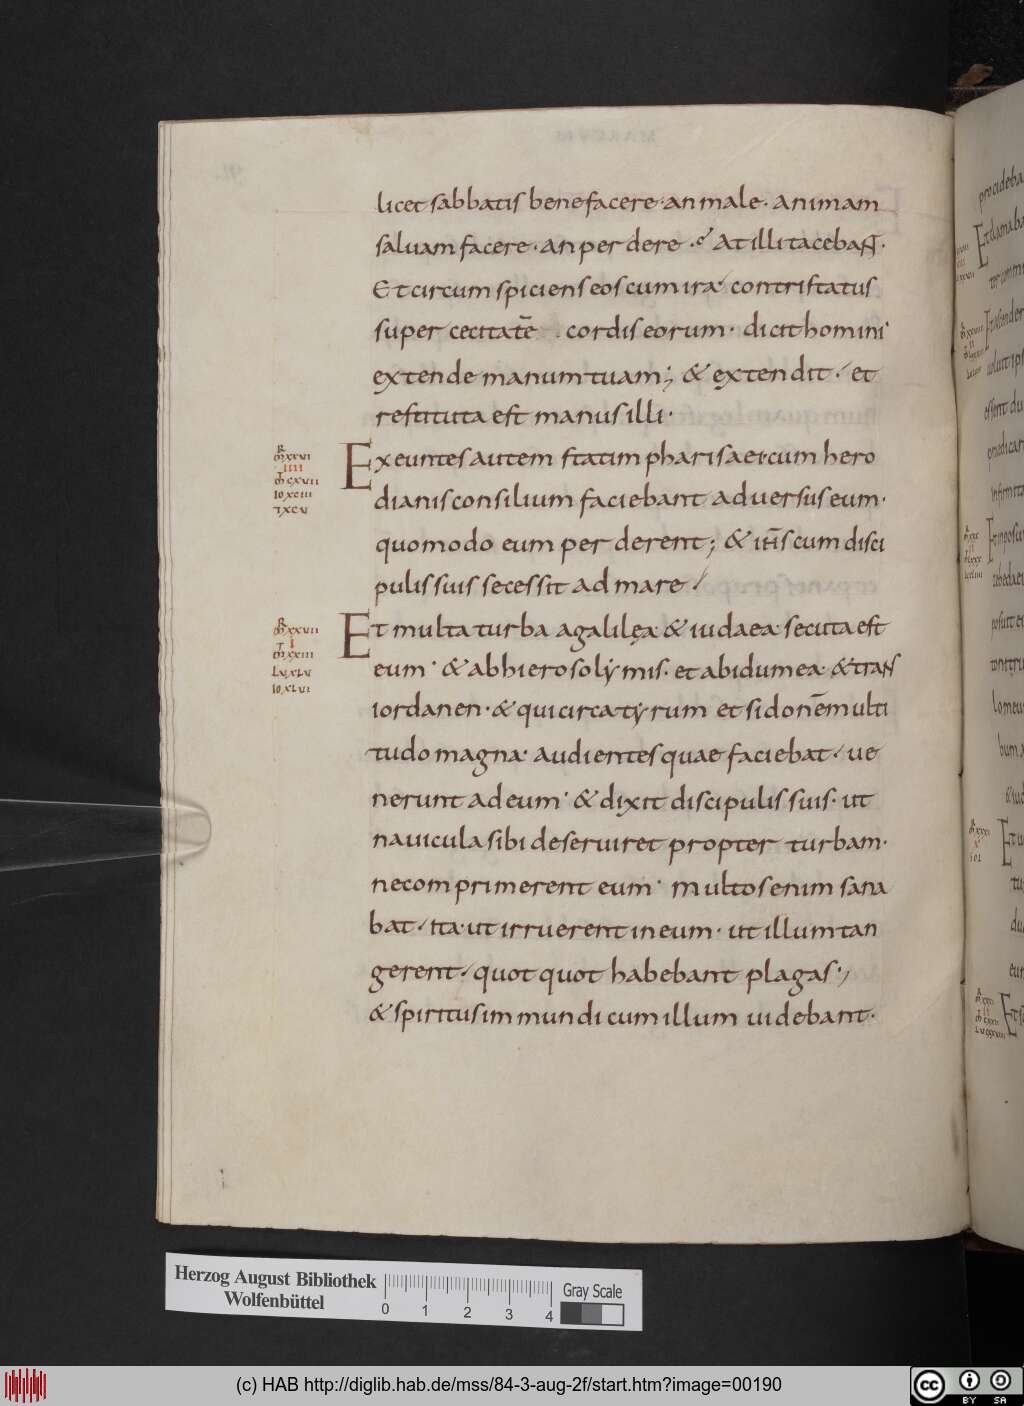 licet sabbatis benefacere· an male· animam
saluam facere· an perdere · At illi tacebant·
Et circumspiciens eos cum ira· contristatus
super cecitatē cordis eorum· dicit homini·
extende manum tuam; & extendit· et
restituta est manus illi·
Exeuntes autem statim pharisaei· cum hero
dianis consilium faciebant aduersus eum·
quomodo eum perderent; & ih̄s cum disci
pulis suis secessit ad mare·
Et multa turba a galilęa & iudaea secuta est
eum· & ab hierosolymis· et ab idumea· & trans
iordanen· & qui circa tyrum et sidonē multi
tudo magna· audientes quae faciebat· ue
nerunt ad eum· & dixit discipulis suis· ut
nauicula sibi deseruiret propter turbam·
ne comprimerent eum· multos enim sana
bat· ita ut irruerent in eum· ut illum tan
gerent· quotquot habebant plagas·
& spiritus immundi cum illum uidebant·
R
m̄ xxvi
iiii
m̄ cxvii
io xciii
R
m̄ xxvii
i
m̄ xxiii
Lu xlv
io xlvi
Herzog August Bibliothek
Wolfenbüttel
0 1 2 3 4
Gray Scale
(c) HAB http://diglib.hab.de/mss/84-3-aug-2f/start.htm?image=00190
cc BY SA